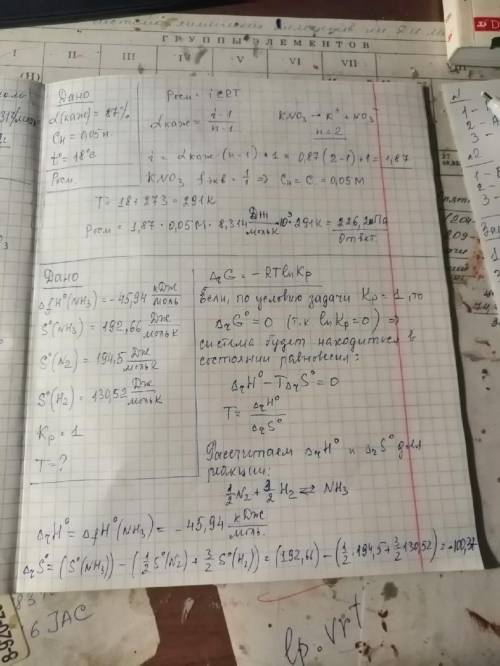 ГРУППЫ ЭЛЕМЕНТОВ
I II III IV V VI VII
Дано
α(каж) = 87%
Cн = 0,05н.
t° = 18°C
Pосм.
Pосм = iCRT
α каж = (i-1)/(n-1)
KNO3 → K⁺ + NO3⁻
n=2
i = α каж·(n-1)+1 = 0,87(2-1)+1 = 1,87
KNO3 fэкв = 1/1 ⇒ Cн = C = 0,05M
T = 18+273 = 291K
Pосм = 1,87 · 0,05M · 8,314 Дж/моль·К · 10³ · 291K = 226,2 кПа
Ответ
Дано
ΔfH°(NH3) = -45,94 кДж/моль
S°(NH3) = 192,66 Дж/моль·К
S°(N2) = 194,5 Дж/моль·К
S°(H2) = 130,52 Дж/моль·К
Kp = 1
T = ?
ΔrG = -RTlnKp
Если, по условию задачи Kp = 1, то
ΔrG° = 0 (т.к lnKp=0) ⇒
система будет находиться в
состоянии равновесия:
ΔrH° - TΔrS° = 0
T = ΔrH°/ΔrS°
Рассчитаем ΔrH° и ΔrS° для
реакции:
1/2 N2 + 3/2 H2 ⇄ NH3
ΔrH° = ΔfH°(NH3) = -45,94 кДж/моль.
ΔrS° = (S°(NH3)) - (1/2 S°(N2) + 3/2 S°(H2)) = (192,66) - (1/2·194,5 + 3/2·130,52) = -100,37
6 JAC